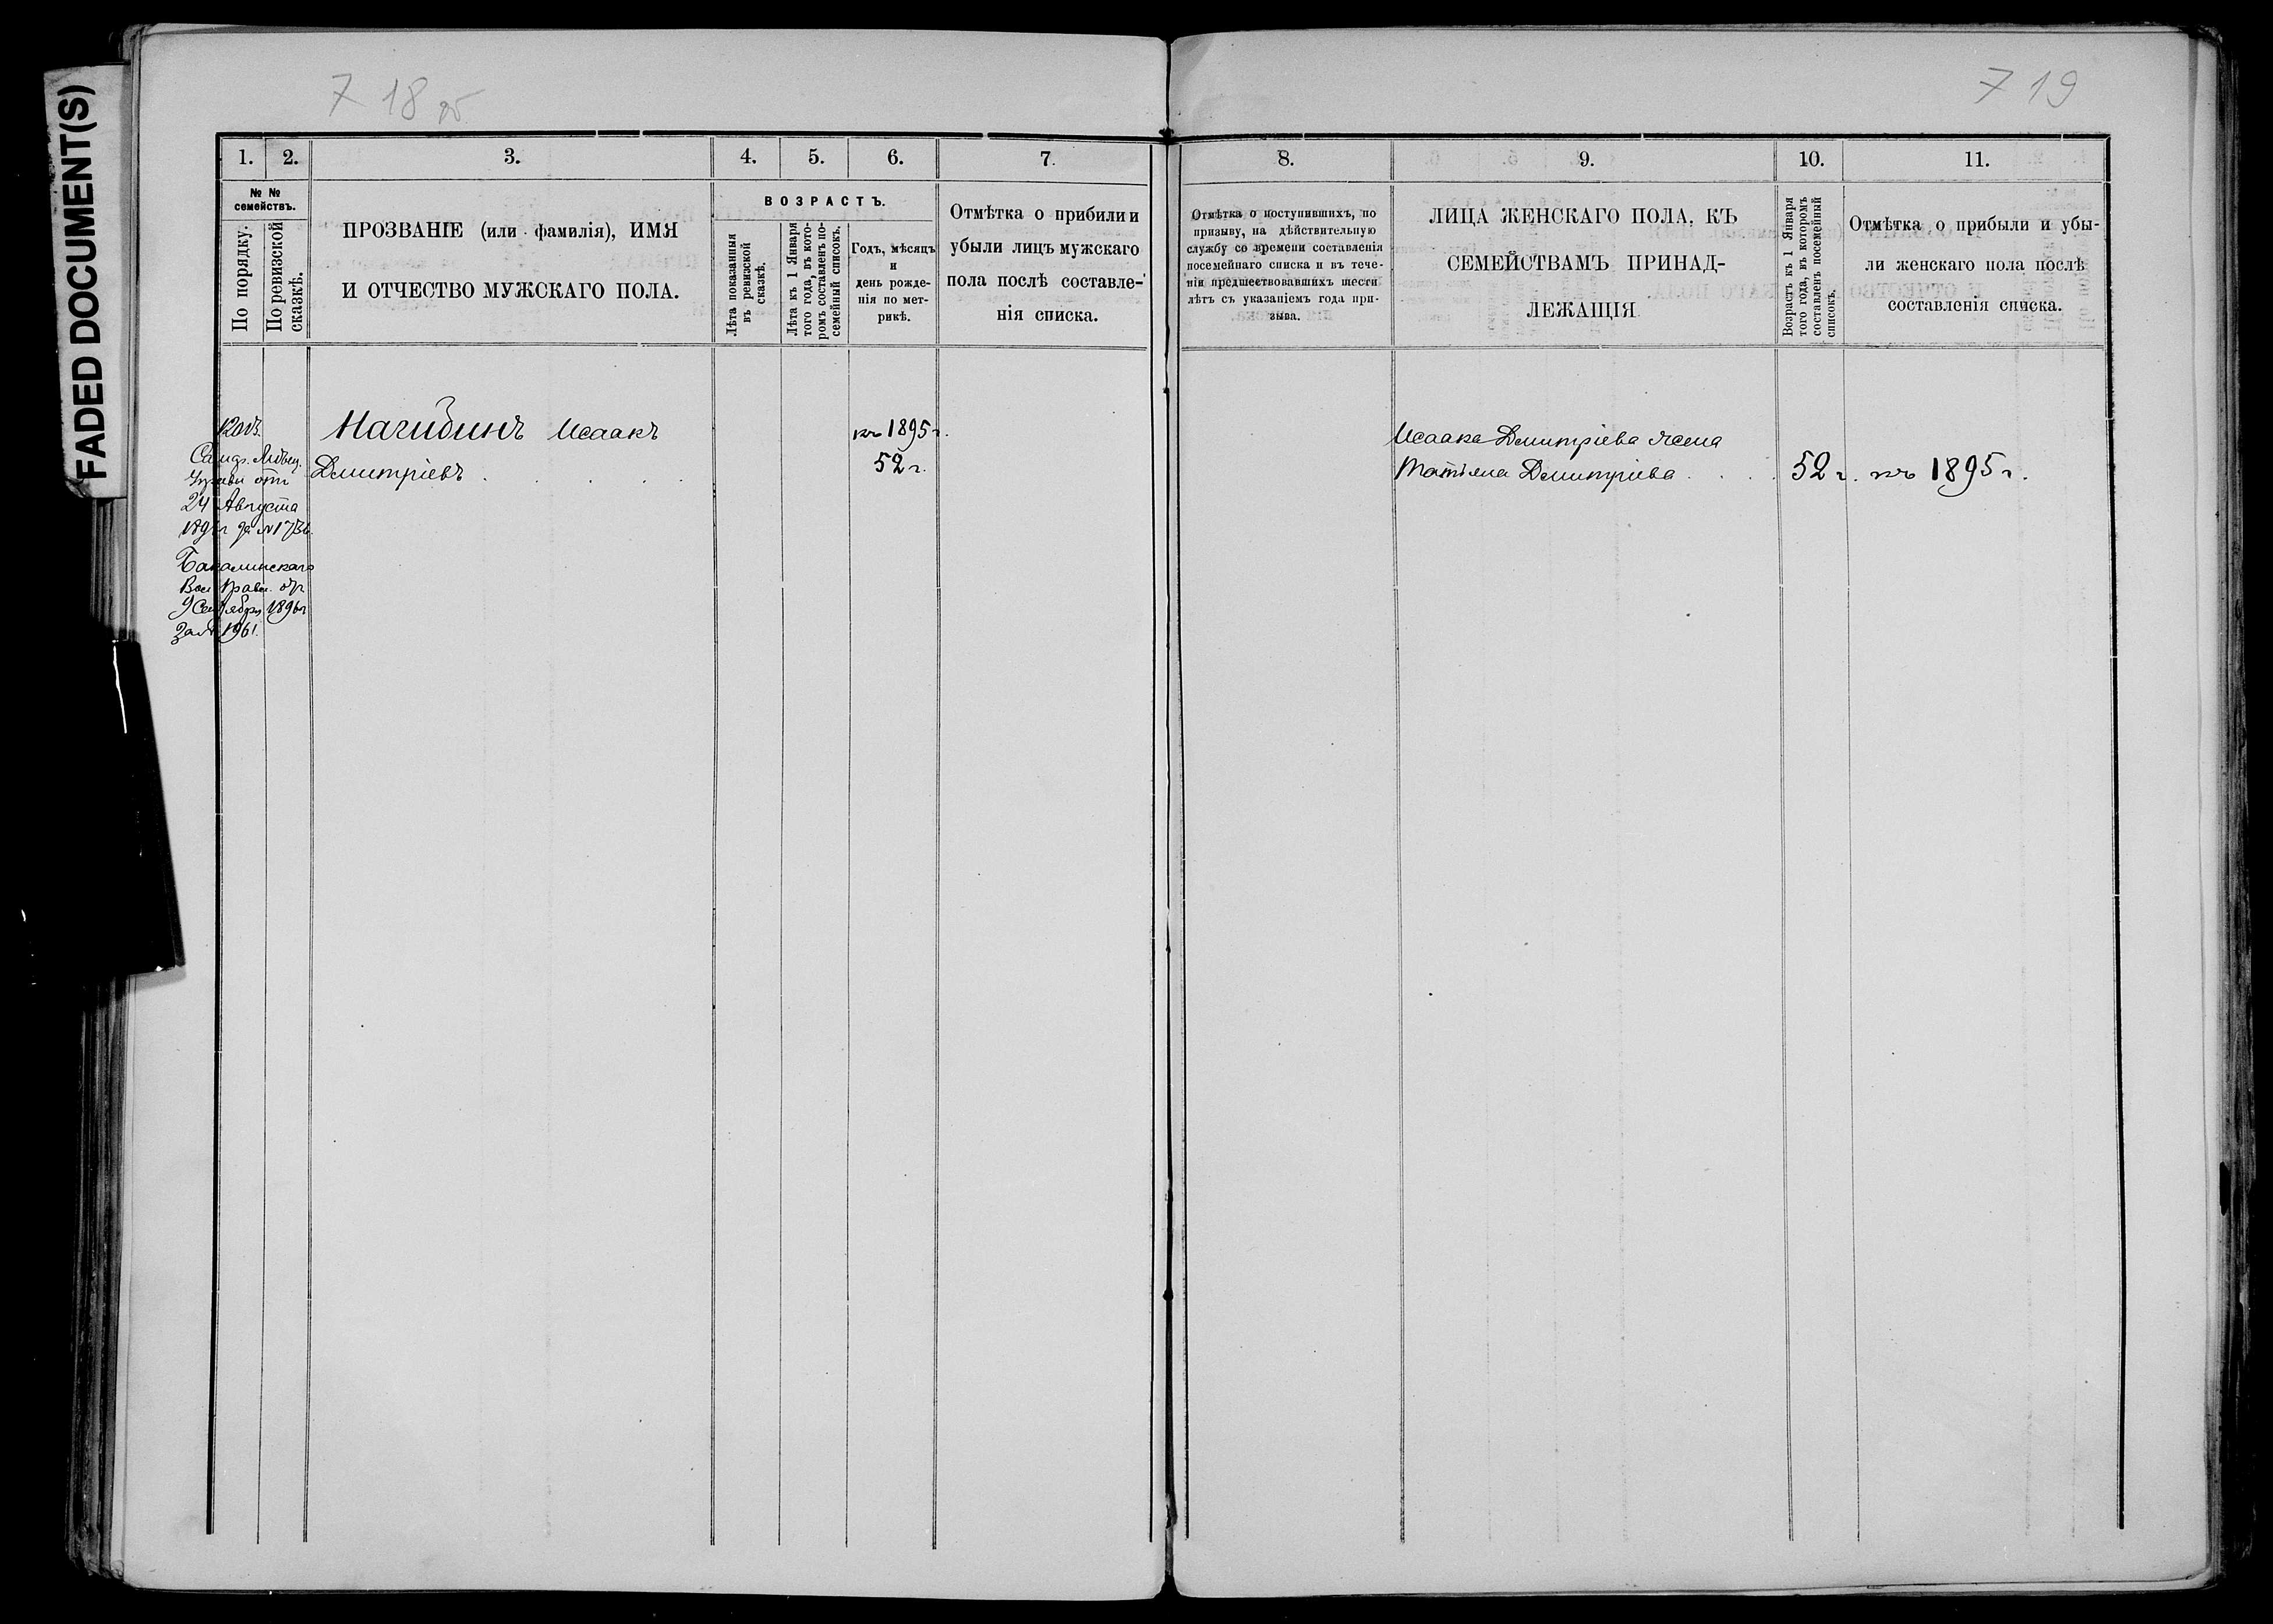 FADED DOCUMENT(S)
718 об
719
1. 2. 3. 4. 5. 6. 7.
№ №
семействъ.
По порядку.
По ревизской
сказкѣ.
ПРОЗВАНІЕ (или фамилія), ИМЯ
И ОТЧЕСТВО МУЖСКАГО ПОЛА.
ВОЗРАСТЪ.
Лѣта показанныя
въ ревизской
сказкѣ.
Лѣта къ 1 Января
того года, въ кото-
ромъ составленъ по-
семейный списокъ.
Годъ, мѣсяцъ
и
день рожде-
нія по мет-
рикѣ.
Отмѣтка о прибили и
убыли лицъ мужскаго
пола послѣ составле-
нія списка.
Нагибинъ Исаакъ
Дмитріевъ
къ 1895 г.
52 г.
отъ
24 Августа
Бакалинскаго
Вол Правл. отъ
9 Сентября 1896 г
за № 1961.
8. 9. 10. 11.
Отмѣтка о поступившихъ, по
призыву, на дѣйствительную
службу со времени составленія
посемейнаго списка и въ тече-
ніи предшествовавшихъ шести
лѣтъ съ указаніемъ года при-
зыва.
ЛИЦА ЖЕНСКАГО ПОЛА, КЪ
СЕМЕЙСТВАМЪ ПРИНАД-
ЛЕЖАЩІЯ
Возрастъ къ 1 Января
того года, въ которомъ
составленъ посемейный
списокъ.
Отмѣтка о прибыли и убы-
ли женскаго пола послѣ
составленія списка.
Исаака Дмитріева жена
Татьяна Дмитріева 52 г. къ 1895 г.